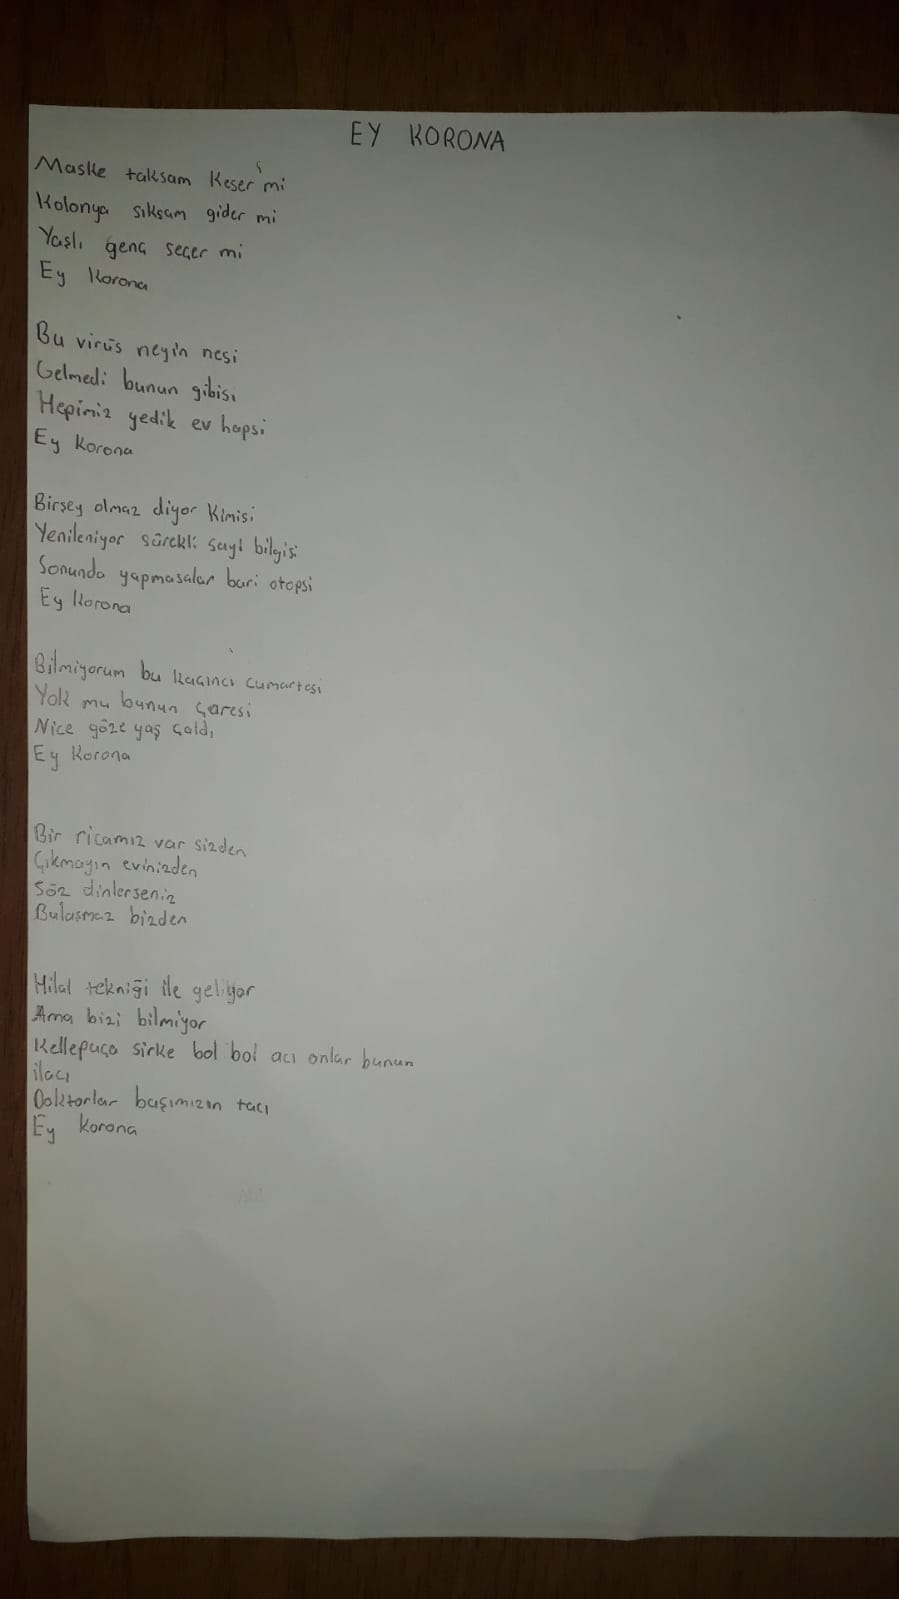 EY KORONA
Maske taksam keser mi
Kolonya sıksam gider mi
Yaşlı genç seçer mi
Ey Korona
Bu virüs neyin nesi
Gelmedi bunun gibisi
Hepimiz yedik ev hapsi
Ey Korona
Birşey olmaz diyor kimisi
Yenileniyor sürekli sayı bilgisi
Sonunda yapmasalar bari otopsi
Ey Korona
Bilmiyorum bu kaçıncı cumartesi
Yok mu bunun çaresi
Nice göze yaş çaldı
Ey Korona
Bir ricamız var sizden
Çıkmayın evinizden
Söz dinlerseniz
Bulaşmaz bizden
Hilal tekniği ile geliyor
Ama bizi bilmiyor
Kellepaça sirke bol bol acı onlar bunun
ilacı
Doktorlar başımızın tacı
Ey Korona